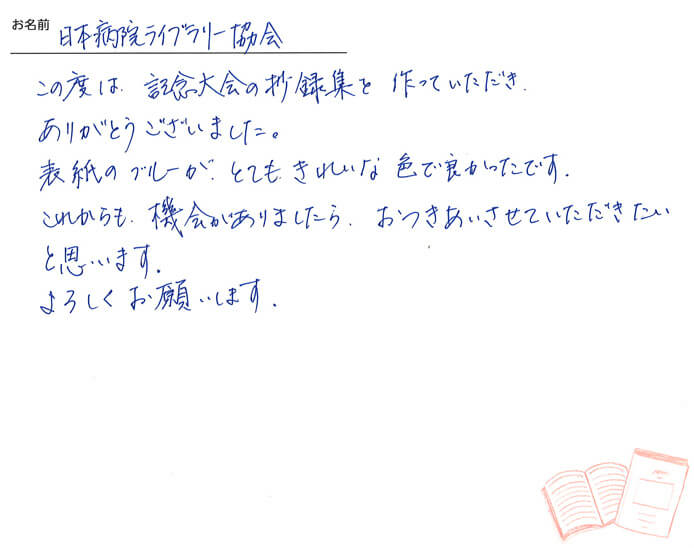 お名前 日本病院ライブラリー協会
この度は、記念大会の抄録集を 作っていただき、
ありがとうございました。
表紙のブルーが、とても きれいな 色で良かったです。
これからも、機会がありましたら、おつきあいさせていただきたい
と思います。
よろしく お願いします。